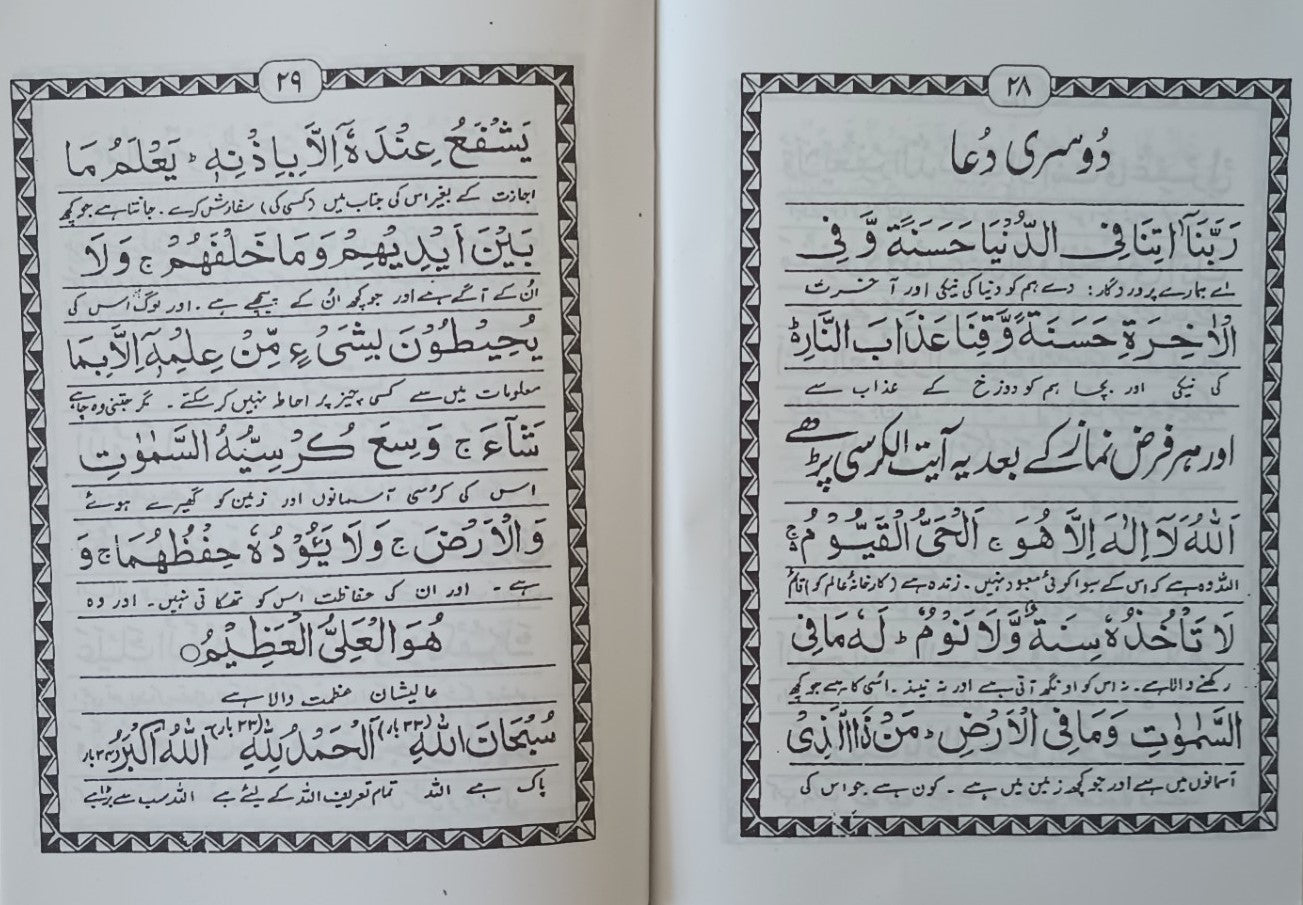 ۲۸
دُوسری دُعا
رَبَّنَآ اٰتِنَا فِی الدُّنْيَا حَسَنَةً وَّ فِی
اے ہمارے پروردگار: دے ہم کو دنیا کی نیکی اور آخرت
الْاٰخِرَةِ حَسَنَةً وَّقِنَا عَذَابَ النَّارِ ط
کی نیکی اور بچا ہم کو دوزخ کے عذاب سے
اور ہر فرض نماز کے بعد یہ آیت الکرسی پڑھے
اَللّٰهُ لَآ اِلٰهَ اِلَّا هُوَ ج اَلْحَیُّ الْقَيُّوْمُ ج
اللہ وہ ہے کہ اس کے سوا کوئی معبود نہیں۔ زندہ ہے (کارخانۂ عالم کو) قائم
لَا تَأْخُذُهٗ سِنَةٌ وَّلَا نَوْمٌ ط لَهٗ مَا فِی
رکھنے والا ہے۔ نہ اس کو اونگھ آتی ہے اور نہ نیند۔ اسی کا ہے جو کچھ
السَّمٰوٰتِ وَمَا فِی الْاَرْضِ ط مَنْ ذَا الَّذِیْ
آسمانوں میں ہے اور جو کچھ زمین میں ہے۔ کون ہے جو اس کی
۲۹
يَشْفَعُ عِنْدَهٗٓ اِلَّا بِاِذْنِهٖ ط يَعْلَمُ مَا
اجازت کے بغیر اس کی جناب میں (کسی کی) سفارش کرے۔ جانتا ہے جو کچھ
بَيْنَ اَيْدِيْهِمْ وَمَا خَلْفَهُمْ ج وَلَا
اُن کے آگے ہے اور جو کچھ اُن کے پیچھے ہے۔ اور لوگ اس کی
يُحِيْطُوْنَ بِشَیْءٍ مِّنْ عِلْمِهٖٓ اِلَّا بِمَا
معلومات میں سے کسی چیز پر احاطہ نہیں کر سکتے۔ مگر جتنی وہ چاہے
شَآءَ ج وَسِعَ كُرْسِيُّهُ السَّمٰوٰتِ
اس کی کرُسی آسمانوں اور زمین کو گھیرے ہوئے
وَالْاَرْضَ ج وَلَا يَـُٔوْدُهٗ حِفْظُهُمَا ج وَ
ہے۔ اور ان کی حفاظت اس کو تھکاتی نہیں۔ اور وہ
هُوَ الْعَلِیُّ الْعَظِيْمُ ○
عالیشان عظمت والا ہے
سُبْحَانَ اللّٰهِ (۳۳ بار) اَلْحَمْدُ لِلّٰهِ (۳۳ بار) اَللّٰهُ اَكْبَرُ ۳۴ بار
پاک ہے اللہ تمام تعریف اللہ کے لیئے ہے اللہ سب سے بڑا ہے